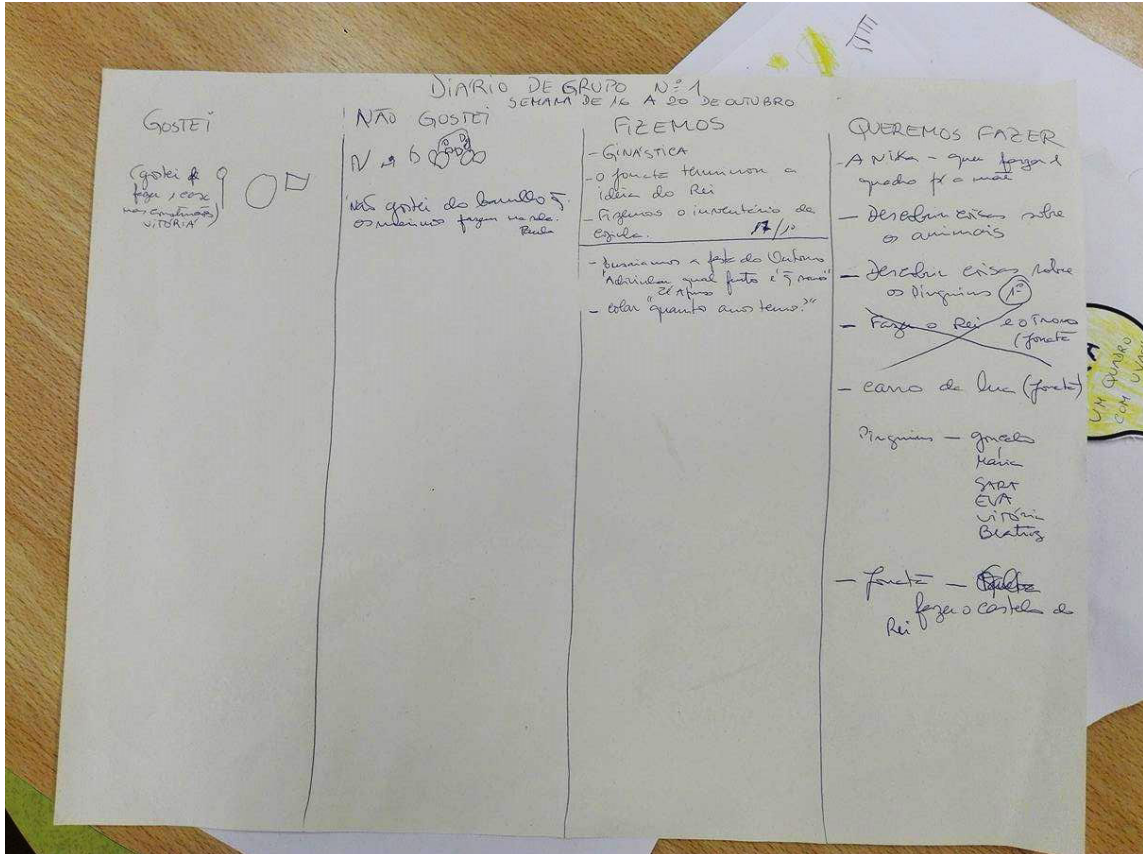 DIÁRIO DE GRUPO Nº 1
SEMANA DE 16 A 20 DE OUTUBRO
GOSTEI
(gostei de
fazer casa
nas construções)
VITÓRIA
NÃO GOSTEI
Não gostei do barulho q̃
os meninos fazem na sala.
Paula
FIZEMOS
- GINÁSTICA
- o Jonatã terminou a
ideia do Rei
- Fizemos o inventário da
escola. 17/10
- a festa do Outono
"Adivinhar qual fruto é q̃
- colar "quantos anos temos?"
QUEREMOS FAZER
- A NiKa - quer fazer 1
quadro p/ a mãe
- Descobrir coisas sobre
os animais
- Descobrir coisas sobre
os Pinguins 1º
- Fazer o Rei e o Trono
(Jonatã
- carro da lua (Jonatã)
Pinguins - Gonçalo
Maria
SARA
EVA
Vitória
Beatriz
- Jonatã -
fazer o castelo do
Rei
UM QUADRO
COM UVAS